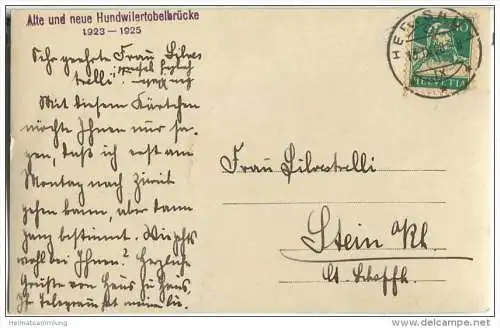 Alte und neue Hundwilertobelbrücke
1923 – 1925
Sehr geehrte Frau Silves
trelli!
Mit diesem Kärtchen
möchte Ihnen nur sa-
gen, daß ich erst am
Montag nach Zürich
gehen kann, aber dann
ganz bestimmt. Wie geht's
wohl bei Ihnen? Herzliche
Grüße von Haus zu Haus,
Ihr Telegramm
HERISAU
HELVETIA
Frau Silvestrelli
Stein a/Rh.
Ct. Schaffh.
Heimatsammlung
delcampe.net